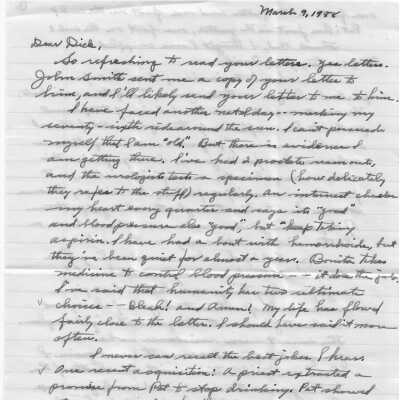 March 9, 1988
Dear Dick,
So refreshing to read your letters. Yes letters.
John Smith sent me a copy of your letter to
him, and I'll likely send your letter to me to him.
I have faced another natal day -- marking my
seventy-sixth ride around the sun. I can't persuade
myself that I am "old." But there is evidence I
am getting there. I've had 2 prostate
and the urologist tests a specimen (how delicately
they refer to the stuff) regularly. An internist checks
my heart every quarter and says it's "good"
and blood pressure also "good", but "keep taking
aspirin. I have had a bout with hemorrhoids, but
they've been quiet for almost a year. Bonita takes
medicine to control blood pressure -- it does the job.
I've said that humanity has two ultimate
choices -- Bleah! and Amen! My life has flowed
fairly close to the latter. I should have said it more
often.
I never can recall the best jokes I hear.
One recent acquisition: A priest extracted a
promise from Pat to stop drinking. Pat showed